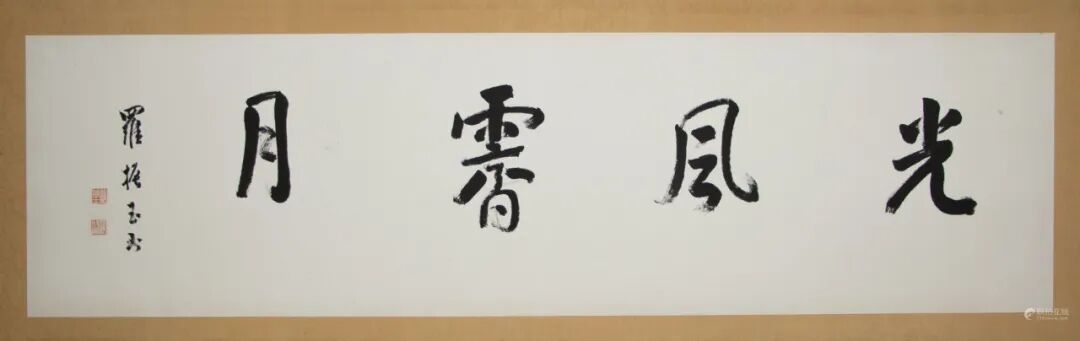 光風霽月
羅振玉書